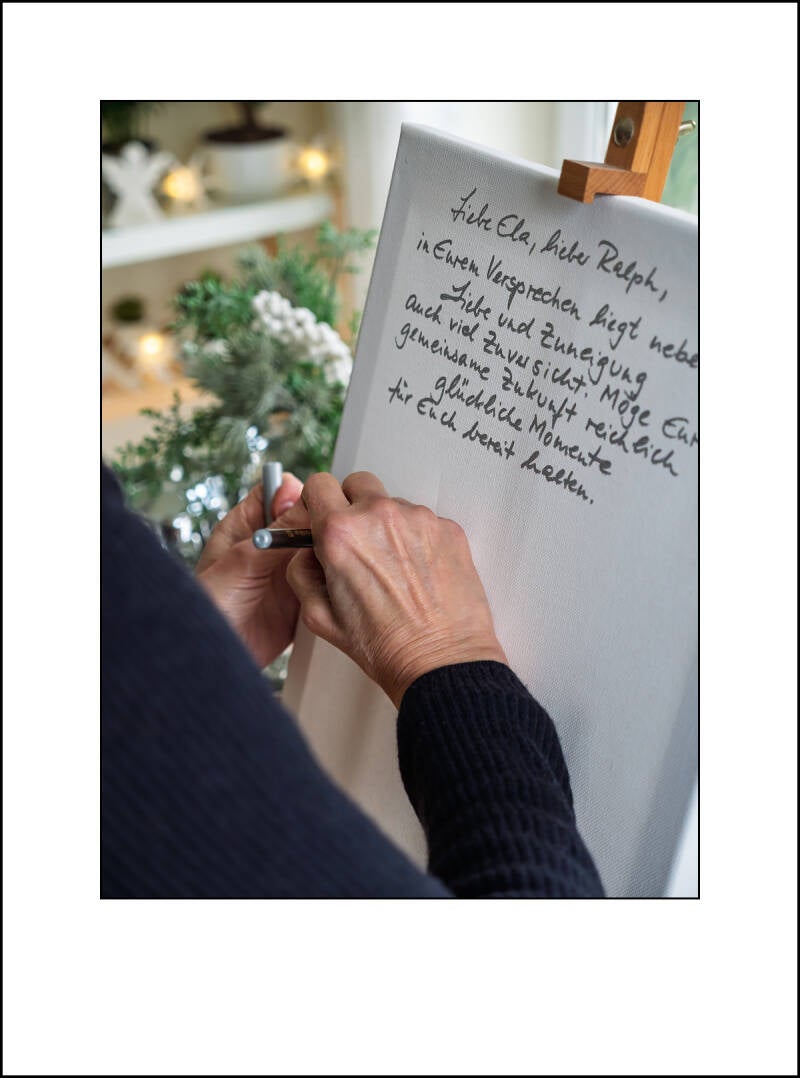 Liebe Ela, lieber Ralph,
in Eurem Versprechen liegt nebe
Liebe und Zuneigung
auch viel Zuversicht. Möge Eur
gemeinsame Zukunft reichlich
glückliche Momente
für Euch bereit halten.